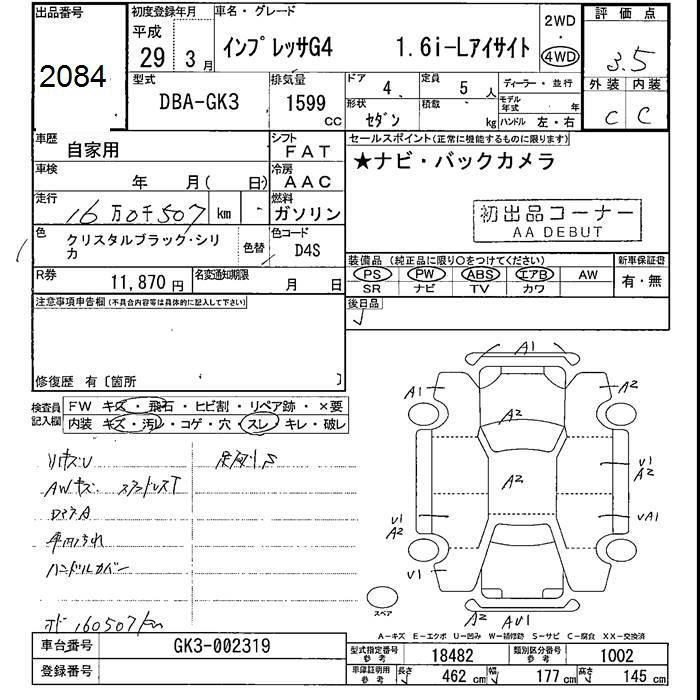 出品番号
2084
初度登録年月
平成
29 3月
車名・グレード
インプレッサG4 1.6i-Lアイサイト
2WD
・
4WD
評価点
3.5
外装 内装
C C
型式
DBA-GK3
排気量
1599
CC
ドア
4
定員
5 人
形状
セダン
積載
kg
ディーラー・並行
モデル年式 年
ハンドル 左・右
車歴
自家用
シフト
FAT
車検
年 月( 日)
冷房
AAC
走行
16万0千507 km
燃料
ガソリン
色
クリスタルブラック・シリカ
色替
色コード
D4S
R券
11,870円
名変通知期限
月 日
セールスポイント(正常に機能するものに限ります)
★ナビ・バックカメラ
初出品コーナー
AA DEBUT
装備品 (純正品に限り○をつけてください)
PS PW ABS エアB AW
SR ナビ TV カワ
新車保証書
有・無
後日品
注意事項申告欄(不具合内容等は具体的に記入して下さい)
修復歴 有〔箇所 〕
検査員記入欄
FW キズ・飛石・ヒビ割・リペア跡・×要
内装 キズ・汚レ・コゲ・穴・スレ・キレ・破レ
AWキズ
ハンドルカバー
160507km
A1
A1
A2
A2
A2
U1
A2
U1
A2
UA1
U1
A2
AU1
スペア
A-キズ E-エクボ U-凹み W-補修跡 S-サビ C-腐食 XX-交換済
車台番号
GK3-002319
登録番号
型式指定番号
参考
18482
類別区分番号
参考
1002
車庫証明用
参考
長さ
462 cm
幅
177 cm
高さ
145 cm